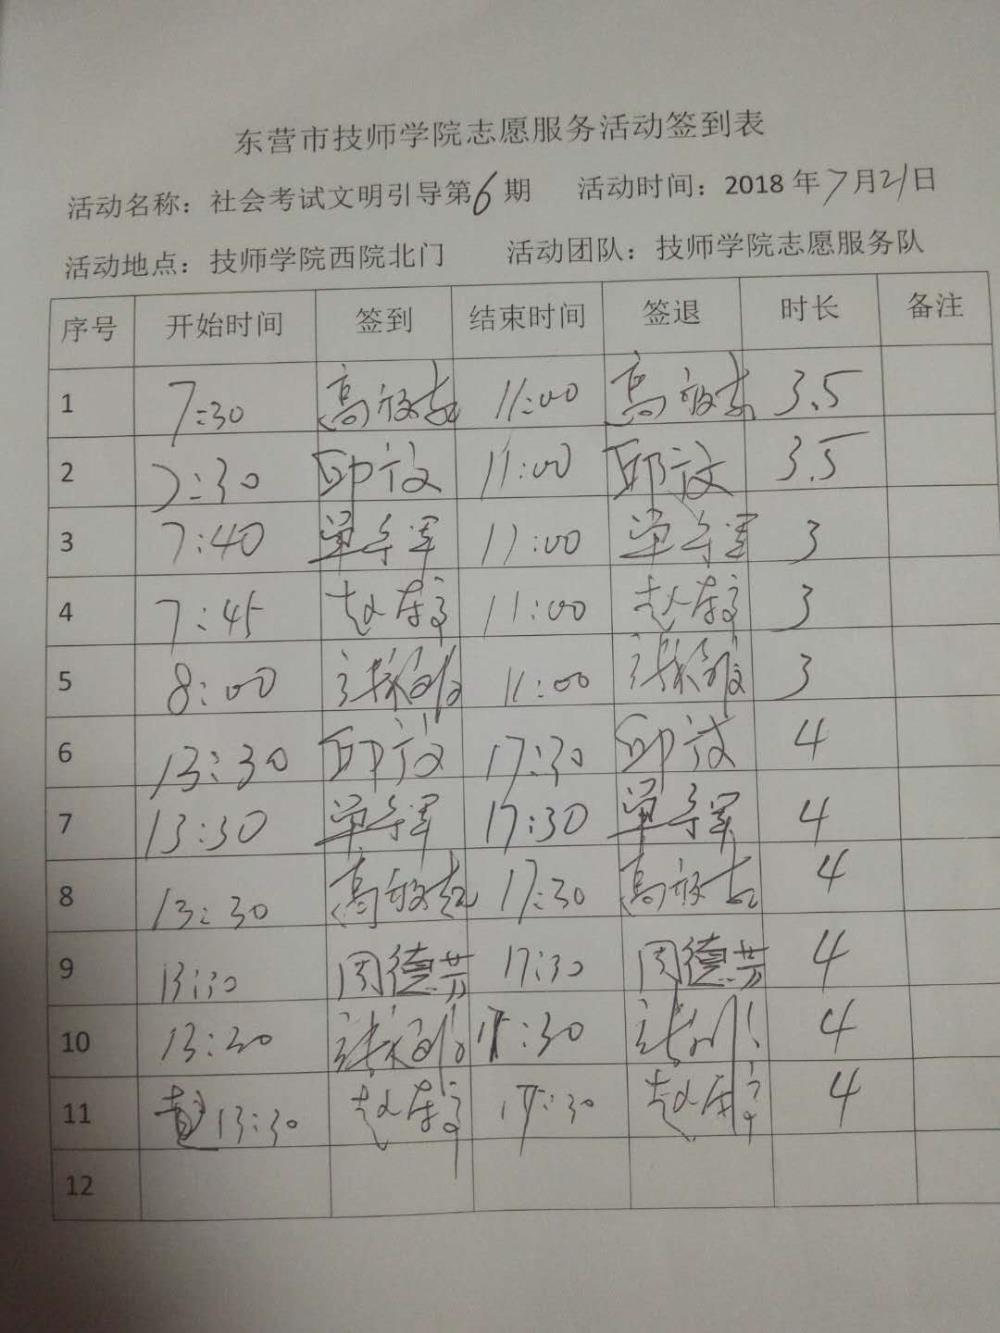 东营市技师学院志愿服务活动签到表
活动名称：社会考试文明引导第6期 活动时间：2018年7月21日
活动地点：技师学院西院北门 活动团队：技师学院志愿服务队
序号 开始时间 签到 结束时间 签退 时长 备注
1 7:30 高 11:00 高 3.5
2 7:30 邱 11:00 邱 3.5
3 7:40 单 11:00 单 3
4 7:45 赵 11:00 赵 3
5 8:00 张 11:00 张 3
6 13:30 邱 17:30 邱 4
7 13:30 单 17:30 单 4
8 13:30 高 17:30 高 4
9 13:30 周德芳 17:30 周德芳 4
10 13:30 张 17:30 张 4
11 13:30 赵 17:30 赵 4
12